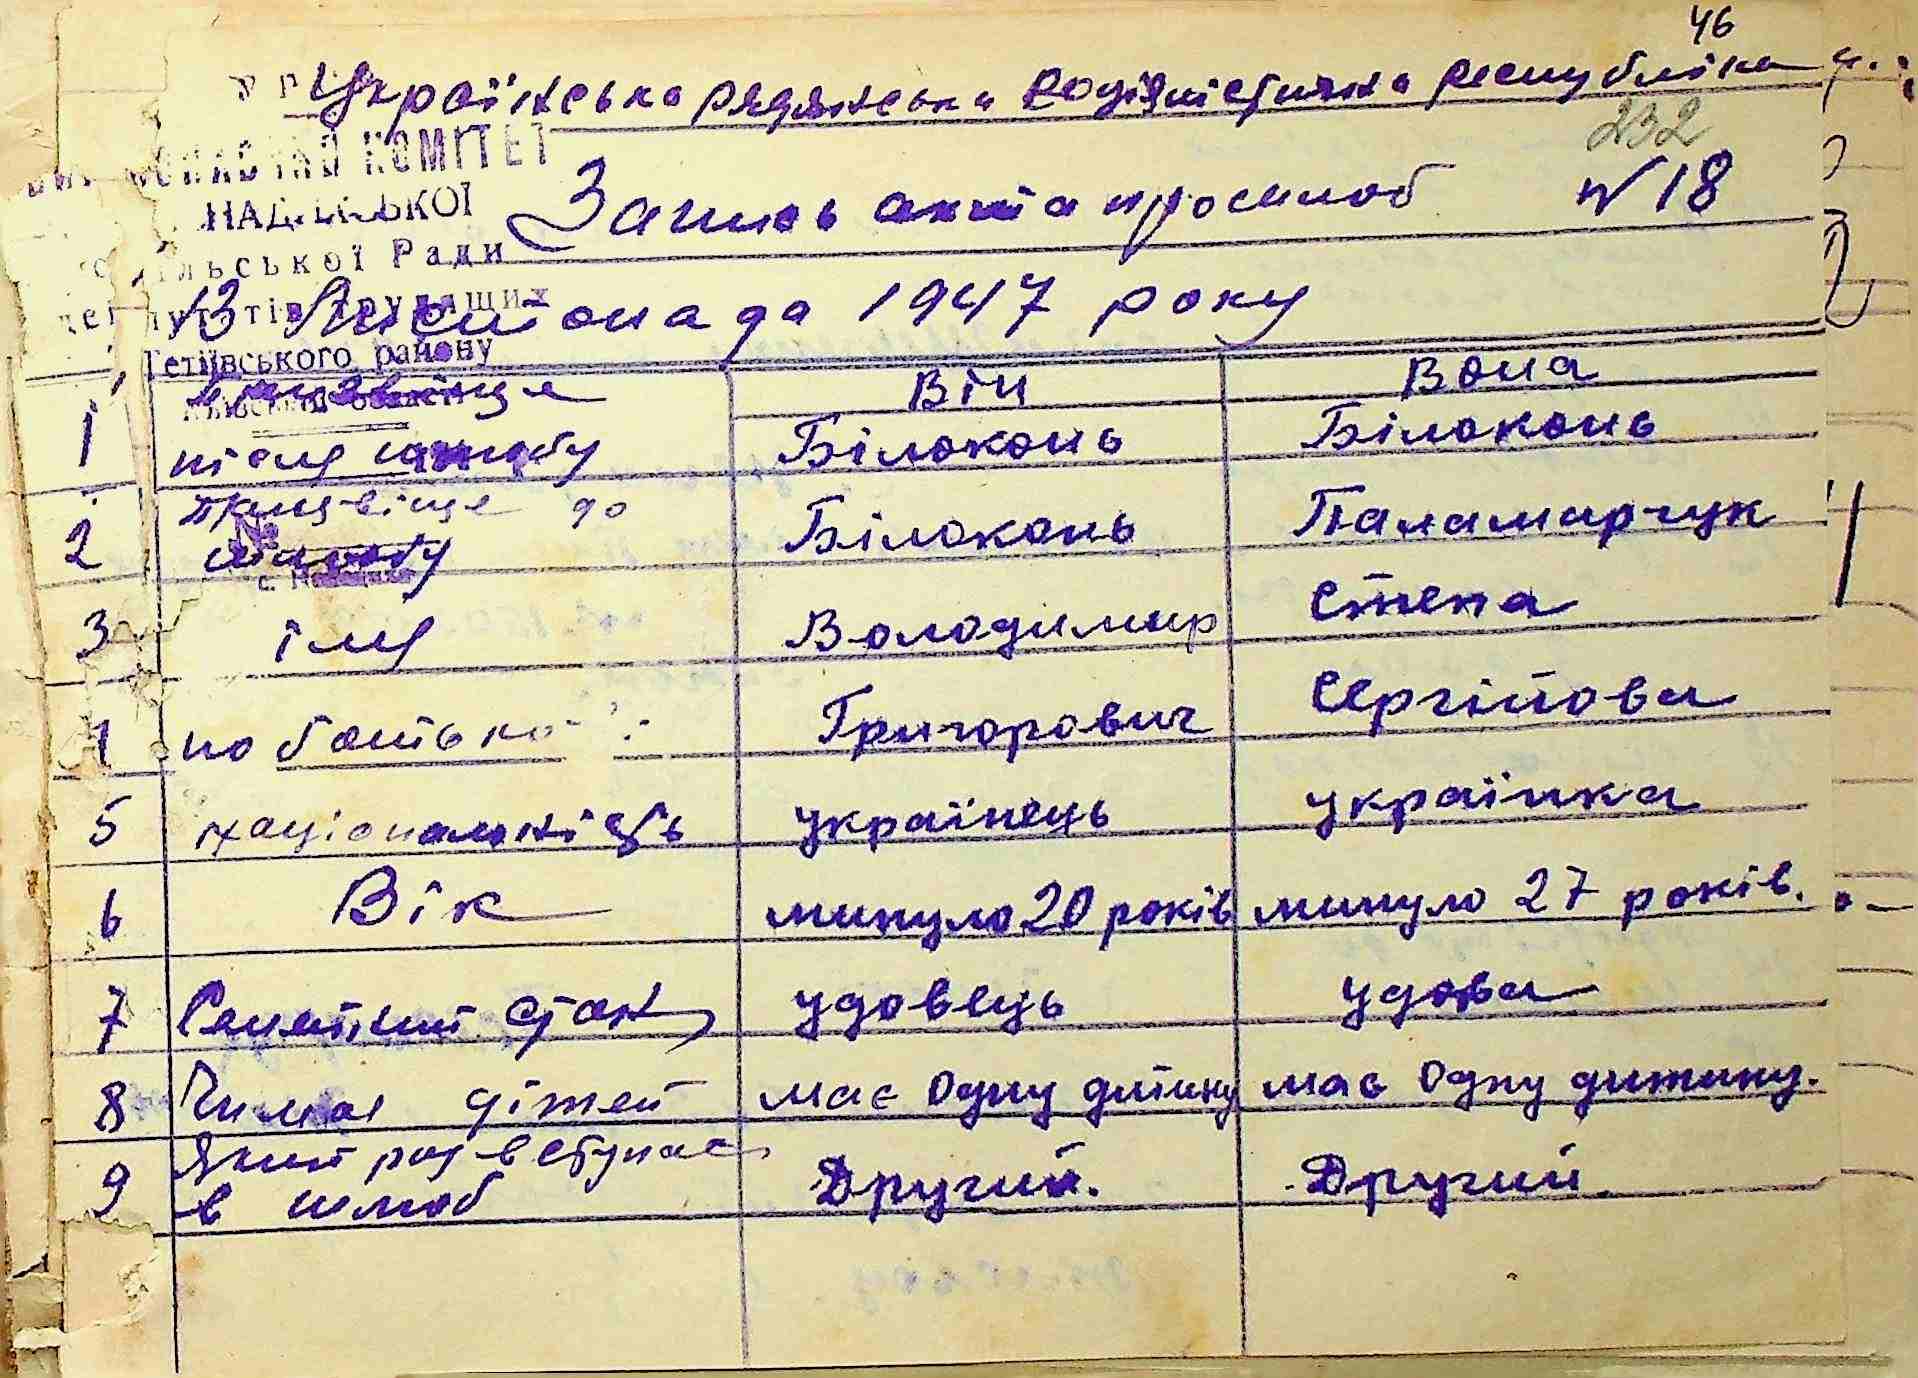 46
Українська радянська Соціалістична республіка
232
КОМІТЕТ
Запись акта про шлюб N 18
Ради
13 Листопада 1947 року
Тетіївського району
Він Вона
1 прізвіще
після шлюбу Білоконь Білоконь
2 прізвіще до
шлюбу Білоконь Паламарчук
3 імя Володимир Степа
по батькові Григорович Сергійова
5 національність українець українка
6 Вік минуло 20 років минуло 27 років.
7 Семейний стан удовець удова
8 Чи має дітей має одну дитину має одну дитину.
9 Який раз вступає
в шлюб Другий. Другий.